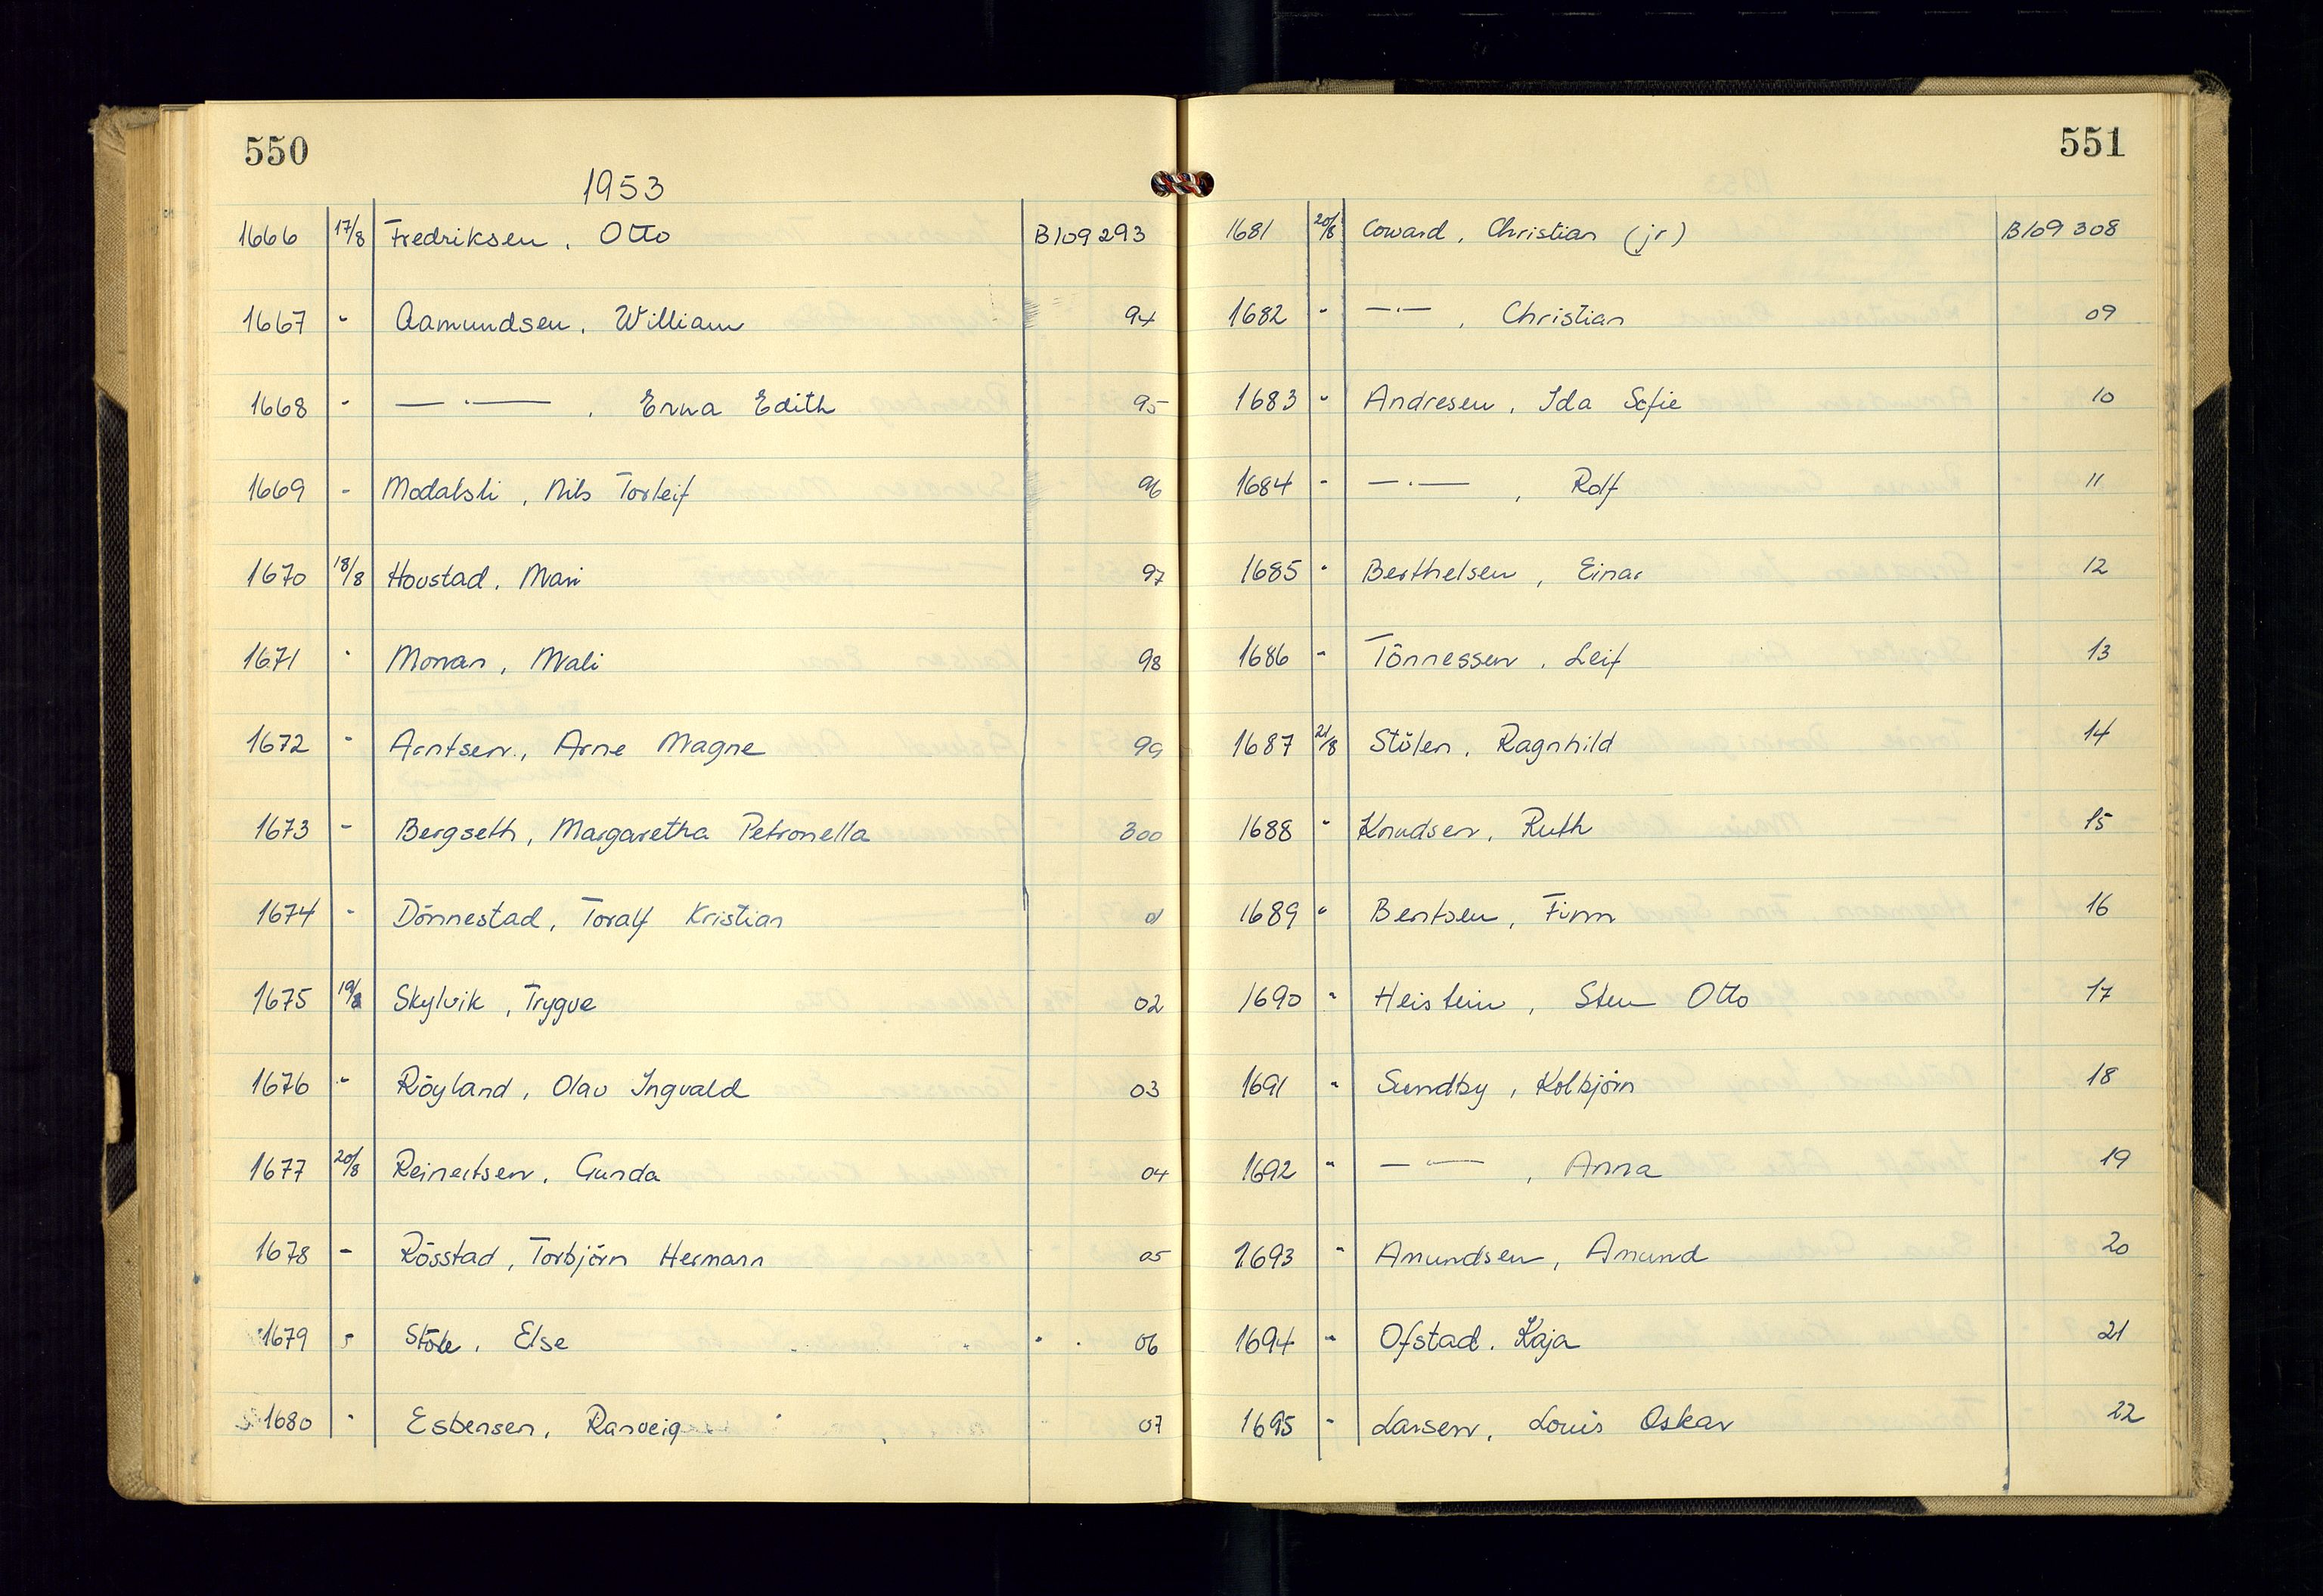 550
1953
1666 17/8 Fredriksen, Otto B109293
1667 " Aamundsen, William 94
1668 - —·—, Erna Edith 95
1669 - Modalsli, Nils Torleif 96
1670 18/8 Hovstad, Mari 97
1671 " Monan, Mali 98
1672 " Arntsen, Arne Magne 99
1673 - Bergseth, Margaretha Petronella 300
1674 - Dönnestad, Toralf Kristian 01
1675 19/8 Skylvik, Trygve 02
1676 " Röyland, Olav Ingvald 03
1677 20/8 Reinertsen, Gunda 04
1678 - Rösstad, Torbjörn Hermann 05
1679 - Stöle, Else 06
1680 " Esbensen, Ranveig 07
551
1681 20/8 Coward, Christian (jr) B109308
1682 - —·—, Christian 09
1683 " Andresen, Ida Sofie 10
1684 - —·—, Rolf 11
1685 " Berthelsen, Einar 12
1686 - Tönnessen, Leif 13
1687 21/8 Stölen, Ragnhild 14
1688 " Knudsen, Ruth 15
1689 " Bentsen, Finn 16
1690 " Heistein, Sten Otto 17
1691 " Sundby, Kolbjörn 18
1692 " —·—, Anna 19
1693 " Amundsen, Amund 20
1694 " Ofstad, Kaja 21
1695 " Larsen, Louis Oskar 22